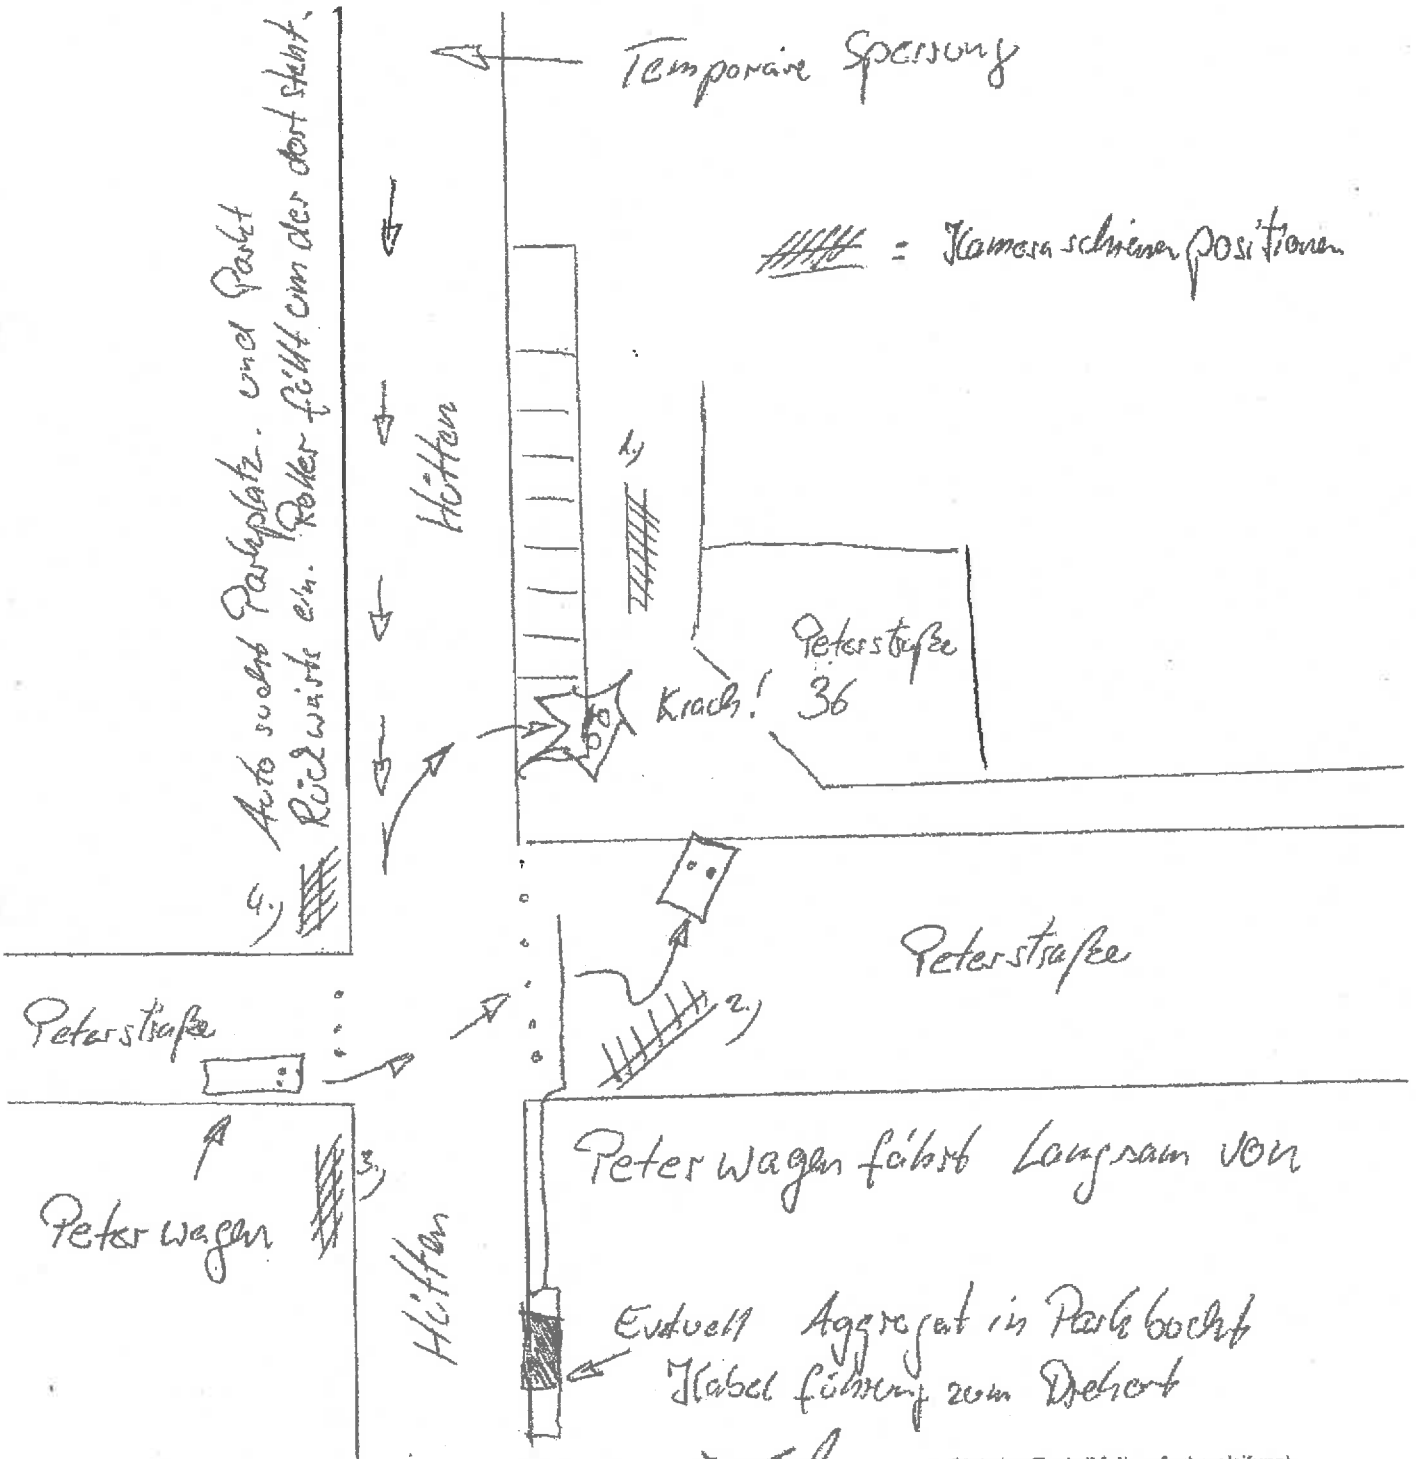 Temporäre Sperrung
= Kameraschienenpositionen
Auto sucht Parkplatz. und Parkt
Rückwärts ein. Roller fällt um der dort steht.
Hütten
1.)
Peterstraße
36
Krach!
4.)
Peterstraße
2.)
Peterstraße
3.)
Peterwagen fährt Langsam von
Peterwagen
Hütten
Evtuell Aggregat in Parkbucht
Kabelführung zum Drehort